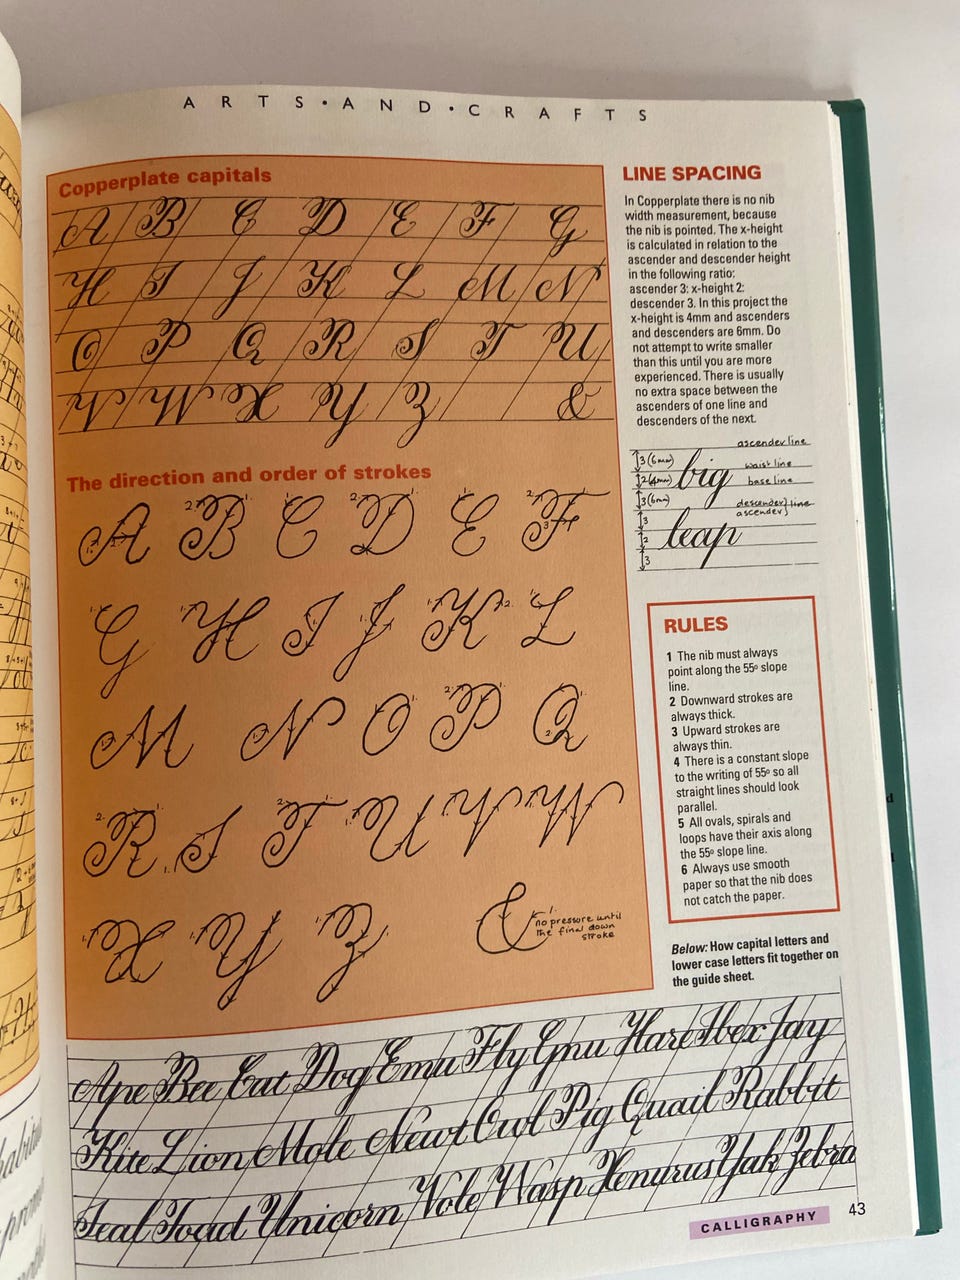 ARTS•AND•CRAFTS
Copperplate capitals
A B C D E F G
H I J K L M N
O P Q R S T U
V W X Y Z &
The direction and order of strokes
A B C D E F
G H I J K L
M N O P Q
R S T U V W
X Y Z &
no pressure until
the final down
stroke
LINE SPACING
In Copperplate there is no nib
width measurement, because
the nib is pointed. The x-height
is calculated in relation to the
ascender and descender height
in the following ratio:
ascender 3: x-height 2:
descender 3. In this project the
x-height is 4mm and ascenders
and descenders are 6mm. Do
not attempt to write smaller
than this until you are more
experienced. There is usually
no extra space between the
ascenders of one line and
descenders of the next.
ascender line
3(6mm) big waist line
2(4mm) base line
3(6mm) descender} line
ascender}
3
2 leap
3
RULES
1 The nib must always
point along the 55º slope
line.
2 Downward strokes are
always thick.
3 Upward strokes are
always thin.
4 There is a constant slope
to the writing of 55º so all
straight lines should look
parallel.
5 All ovals, spirals and
loops have their axis along
the 55º slope line.
6 Always use smooth
paper so that the nib does
not catch the paper.
Below: How capital letters and
lower case letters fit together on
the guide sheet.
Ape Bee Cat Dog Emu Fly Gnu Hare Ibex Jay
Kite Lion Mole Newt Owl Pig Quail Rabbit
Seal Toad Unicorn Vole Wasp Xenurus Yak Zebra
CALLIGRAPHY
43